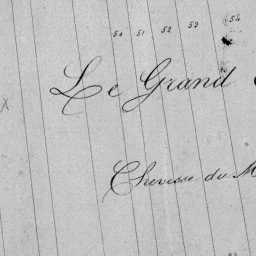 50 51 52 53 54
Le Grand
Chevesse du